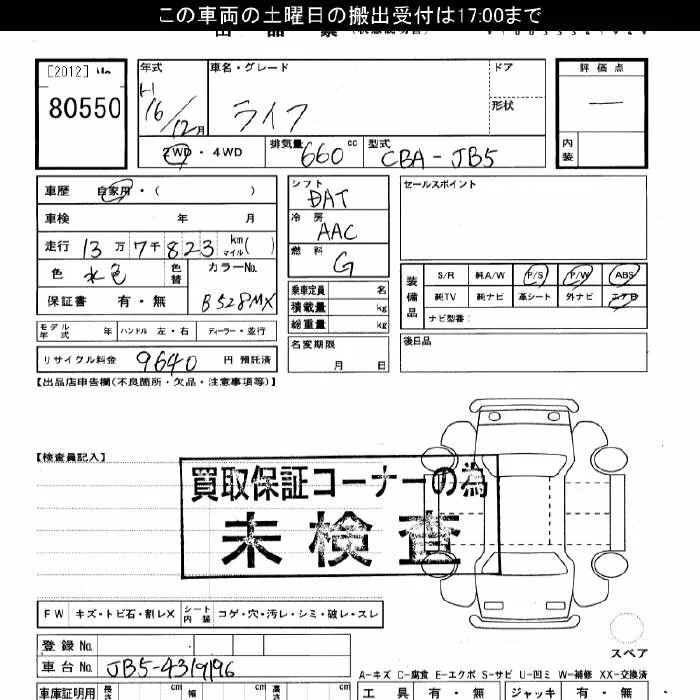 この車両の土曜日の搬出受付は17:00まで
出品票
[2012] No
80550
年式
H
16/12月
車名・グレード
ライフ
ドア
形状
評価点
—
内装
2WD・4WD
排気量 660 cc
型式 CBA-JB5
車歴 自家用・( )
車検 年 月
走行 13万7千823 km マイル( )
色 水色 色替
カラーNo. B528MX
保証書 有・無
シフト DAT
冷房 AAC
燃料 G
乗車定員 名
積載量 kg
総重量 kg
名変期限 月 日
セールスポイント
装備品
S/R 純A/W P/S P/W ABS
純TV 純ナビ 革シート 外ナビ エアB
ナビ型番:
後日品
モデル年式 年 ハンドル 左・右 ディーラー・並行
リサイクル料金 9640 円 預託済
【出品店申告欄(不良箇所・欠品・注意事項等)】
【検査員記入】
買取保証コーナーの為
未検査
FW キズ・トビ石・割レX シート内装 コゲ・穴・汚レ・シミ・破レ・スレ
登録 No.
車台 No. JB5-4319196
スペア
A-キズ C-腐食 E-エクボ S-サビ U-凹ミ W-補修 XX-交換済
車庫証明用 長さ cm 幅 cm 高さ cm
工具 有・無 ジャッキ 有・無